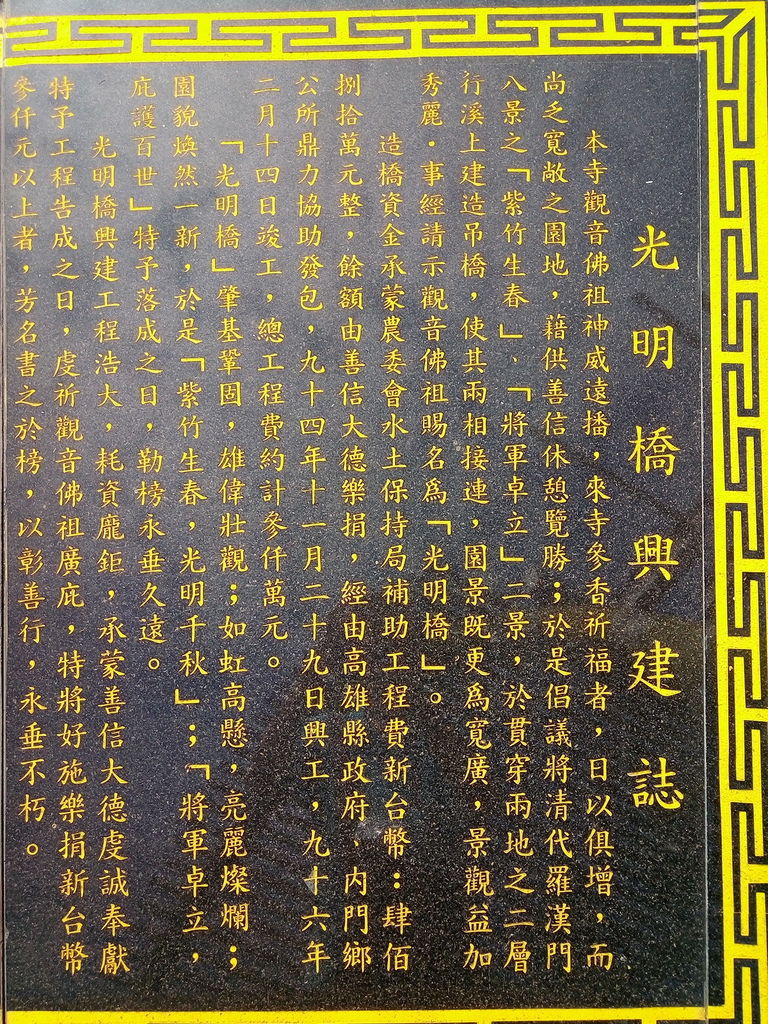 光明橋興建誌
本寺觀音佛祖神威遠播，來寺參香祈福者，日以俱增，而
尚乏寬敞之園地，藉供善信休憩覽勝；於是倡議將清代羅漢門
八景之「紫竹生春」、「將軍卓立」二景，於貫穿兩地之二層
行溪上建造吊橋，使其兩相接連，園景既更為寬廣，景觀益加
秀麗．事經請示觀音佛祖賜名為「光明橋」。
造橋資金承蒙農委會水土保持局補助工程費新台幣：肆佰
捌拾萬元整，餘額由善信大德樂捐，經由高雄縣政府、內門鄉
公所鼎力協助發包，九十四年十一月二十九日興工，九十六年
二月十四日竣工，總工程費約計參仟萬元。
「光明橋」肇基鞏固，雄偉壯觀；如虹高懸，亮麗燦爛；
園貌煥然一新，於是「紫竹生春，光明千秋」；「將軍卓立，
庇護百世」特予落成之日，勒榜永垂久遠。
光明橋興建工程浩大，耗資龐鉅，承蒙善信大德虔誠奉獻
特予工程告成之日，虔祈觀音佛祖廣庇，特將好施樂捐新台幣
參仟元以上者，芳名書之於榜，以彰善行，永垂不朽。